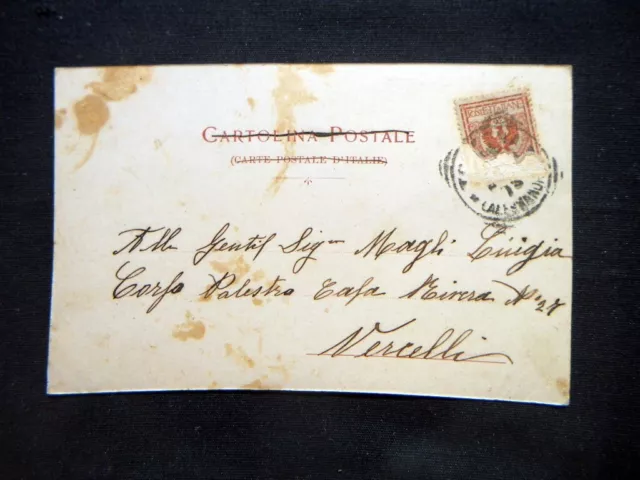 CARTOLINA POSTALE
(CARTE POSTALE D'ITALIE)
(ALESSANDRIA)
Alla Gentil Sigra Magli Luigia
Corso Palestro Casa Rivera No 28
Vercelli